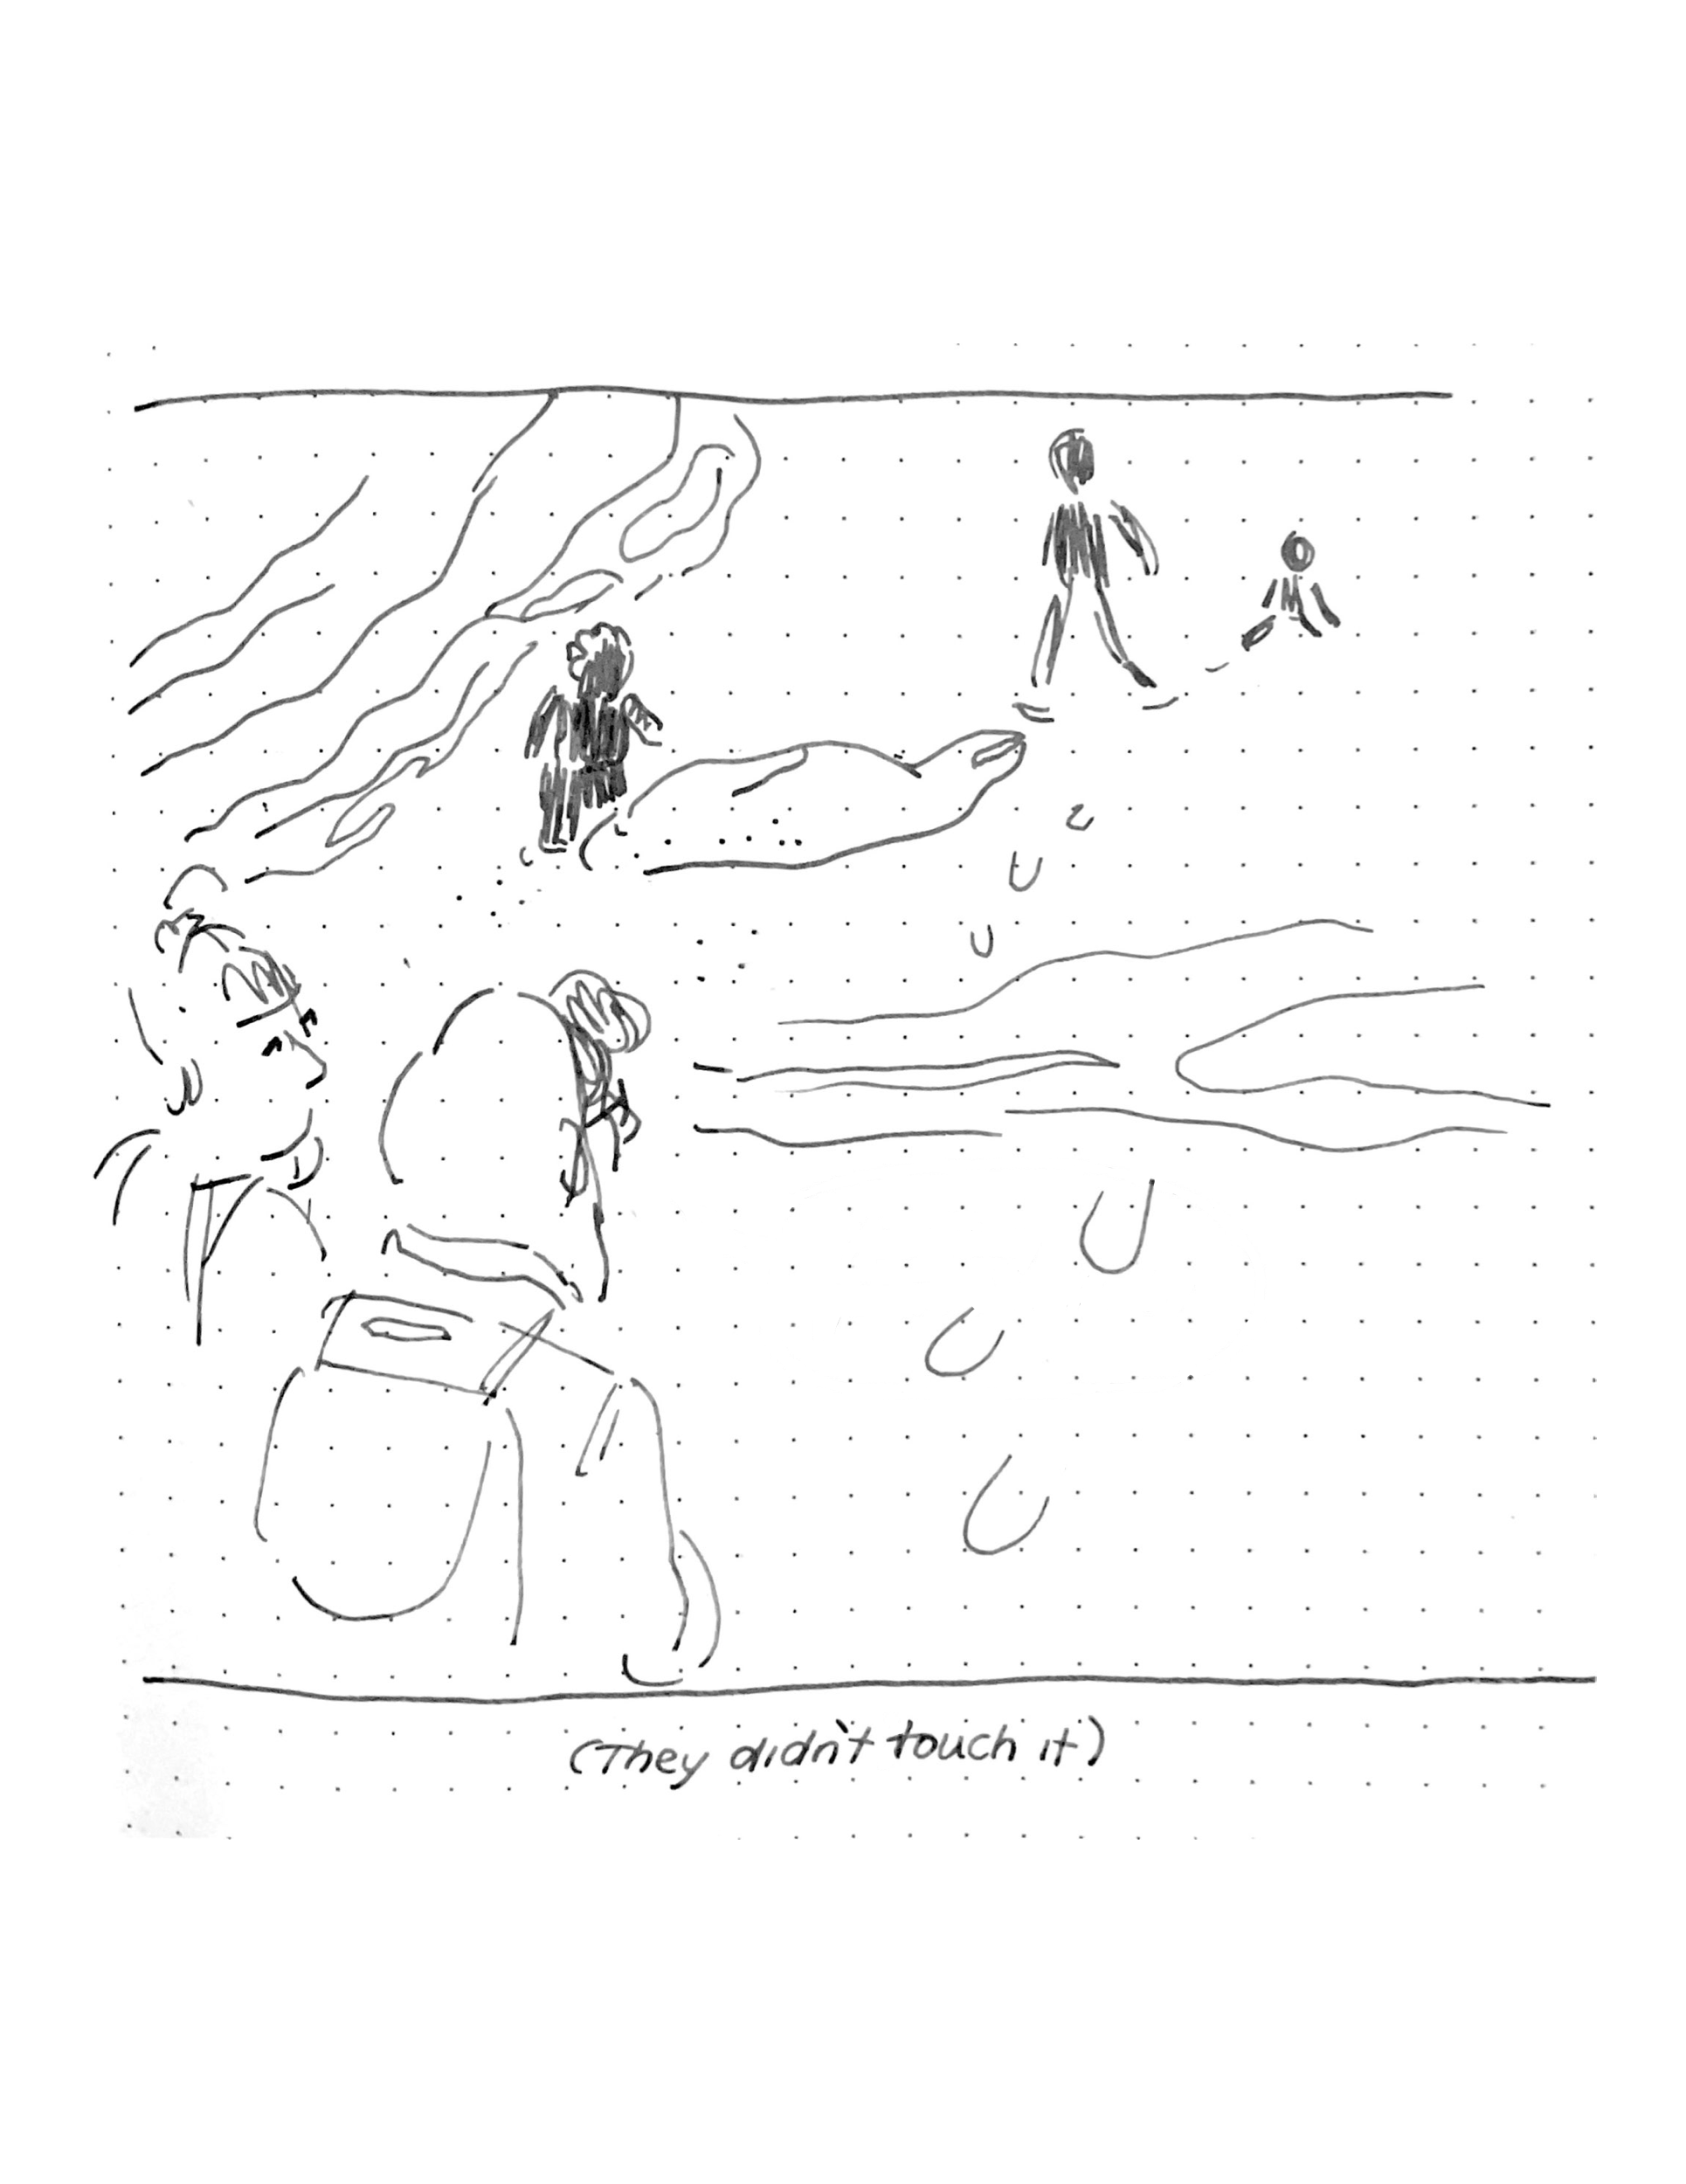 (They didn't touch it)